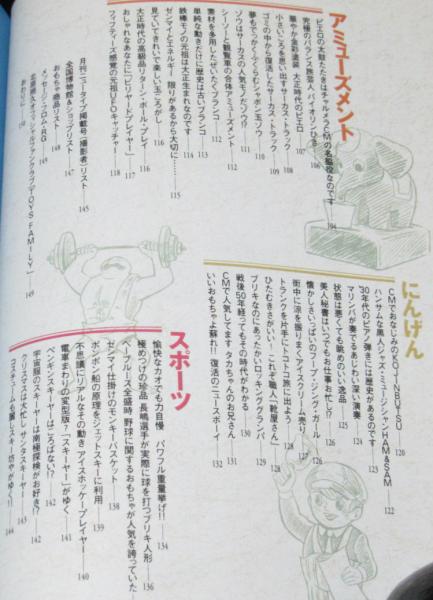 アミューズメント
ピエロの太鼓たたきはチャルメラCMの名脇役なのです 104
究極のバランス旅芸人 バイオリンひき 106
華やか金彩塗装 大正時代のピエロ 107
小さいころを思い出すサーカス・トラック 108
ゴミの中から復活したサーカス・トラック 109
夢もでっかくふくらむシャボン玉ゾウ 110
ゾウはサーカスの人気モノだゾウ!? 111
シーソーと観覧車の合体アミューズメント 112
素材を多用したぜいたくブランコ 112
単純な動きだけに歴史は古いブランコ 113
鉄棒モノの元祖は大正生まれなのです 114
ゼンマイとエネルギー 限りがあるから大切に…… 115
見ていてきれいで楽しい玉ころがし 116
大正時代の高級品リターン・ボール・プレイ 116
おしゃれなあなたに「ビリヤードプレイヤー」 117
フィフティーズ感覚の元祖UFOキャッチャー 118
月刊ニュータイプ掲載号〈撮影者〉リスト 145
全国博物館&ショップリスト 147
おもちゃ絶品リスト 148
メッセージ・フロム・RG 148
北原照久オフィシャルファンクラブ「TOYS FAMILY」 149
おわりに 150
にんげん
CMでおなじみのKO-IN BUYSU 120
ハンサムな黒人ジャズ・ミュージシャンHAM&SAM 122
'30年代のピアノ弾きには歴史があるのです 124
マリンバが奏でるあじわい深い演奏 125
状態は悪くても眺めのいい逸品 125
美人秘書はいつでもお仕事お忙し!? 126
懐かしさいっぱいのフープ・ジング・ガール 126
街中に涼を振りまくアイスクリーム売り 127
トランクを片手にトコトコ旅に出よう 128
ひたむきさがいい! これぞ職人「靴屋さん」 128
ブリキなのにあったかいロッキンググランパ 129
戦後50年経ってもその時代がわかる 130
CMで人気してます タカちゃんのお父さん 131
いいおもちゃよ蘇れ!! 復活のニュースボーイ 132
スポーツ
愉快なカオでも力自慢 パワフル重量挙げ!! 134
極めつけの珍品 長嶋選手が実際に球を打つブリキ人形 136
ベーブルース全盛時 野球に関するおもちゃが人気を誇っていた
ゼンマイ仕掛けのモンキーバスケット 138
ポンポン船の原理をジェットスキーに利用 139
不思議にリアルなその動き アイスホッケープレイヤー 140
電車まわりの変型版?「スキーヤー」がゆく 141
ペンギンスキーヤーはころばない!? 142
宇宙服のスキーヤーは南極探検がお好き!? 142
クリスマスは大忙し サンタスキーヤー 143
コスチュームも麗しスキー坊やがゆく!! 144